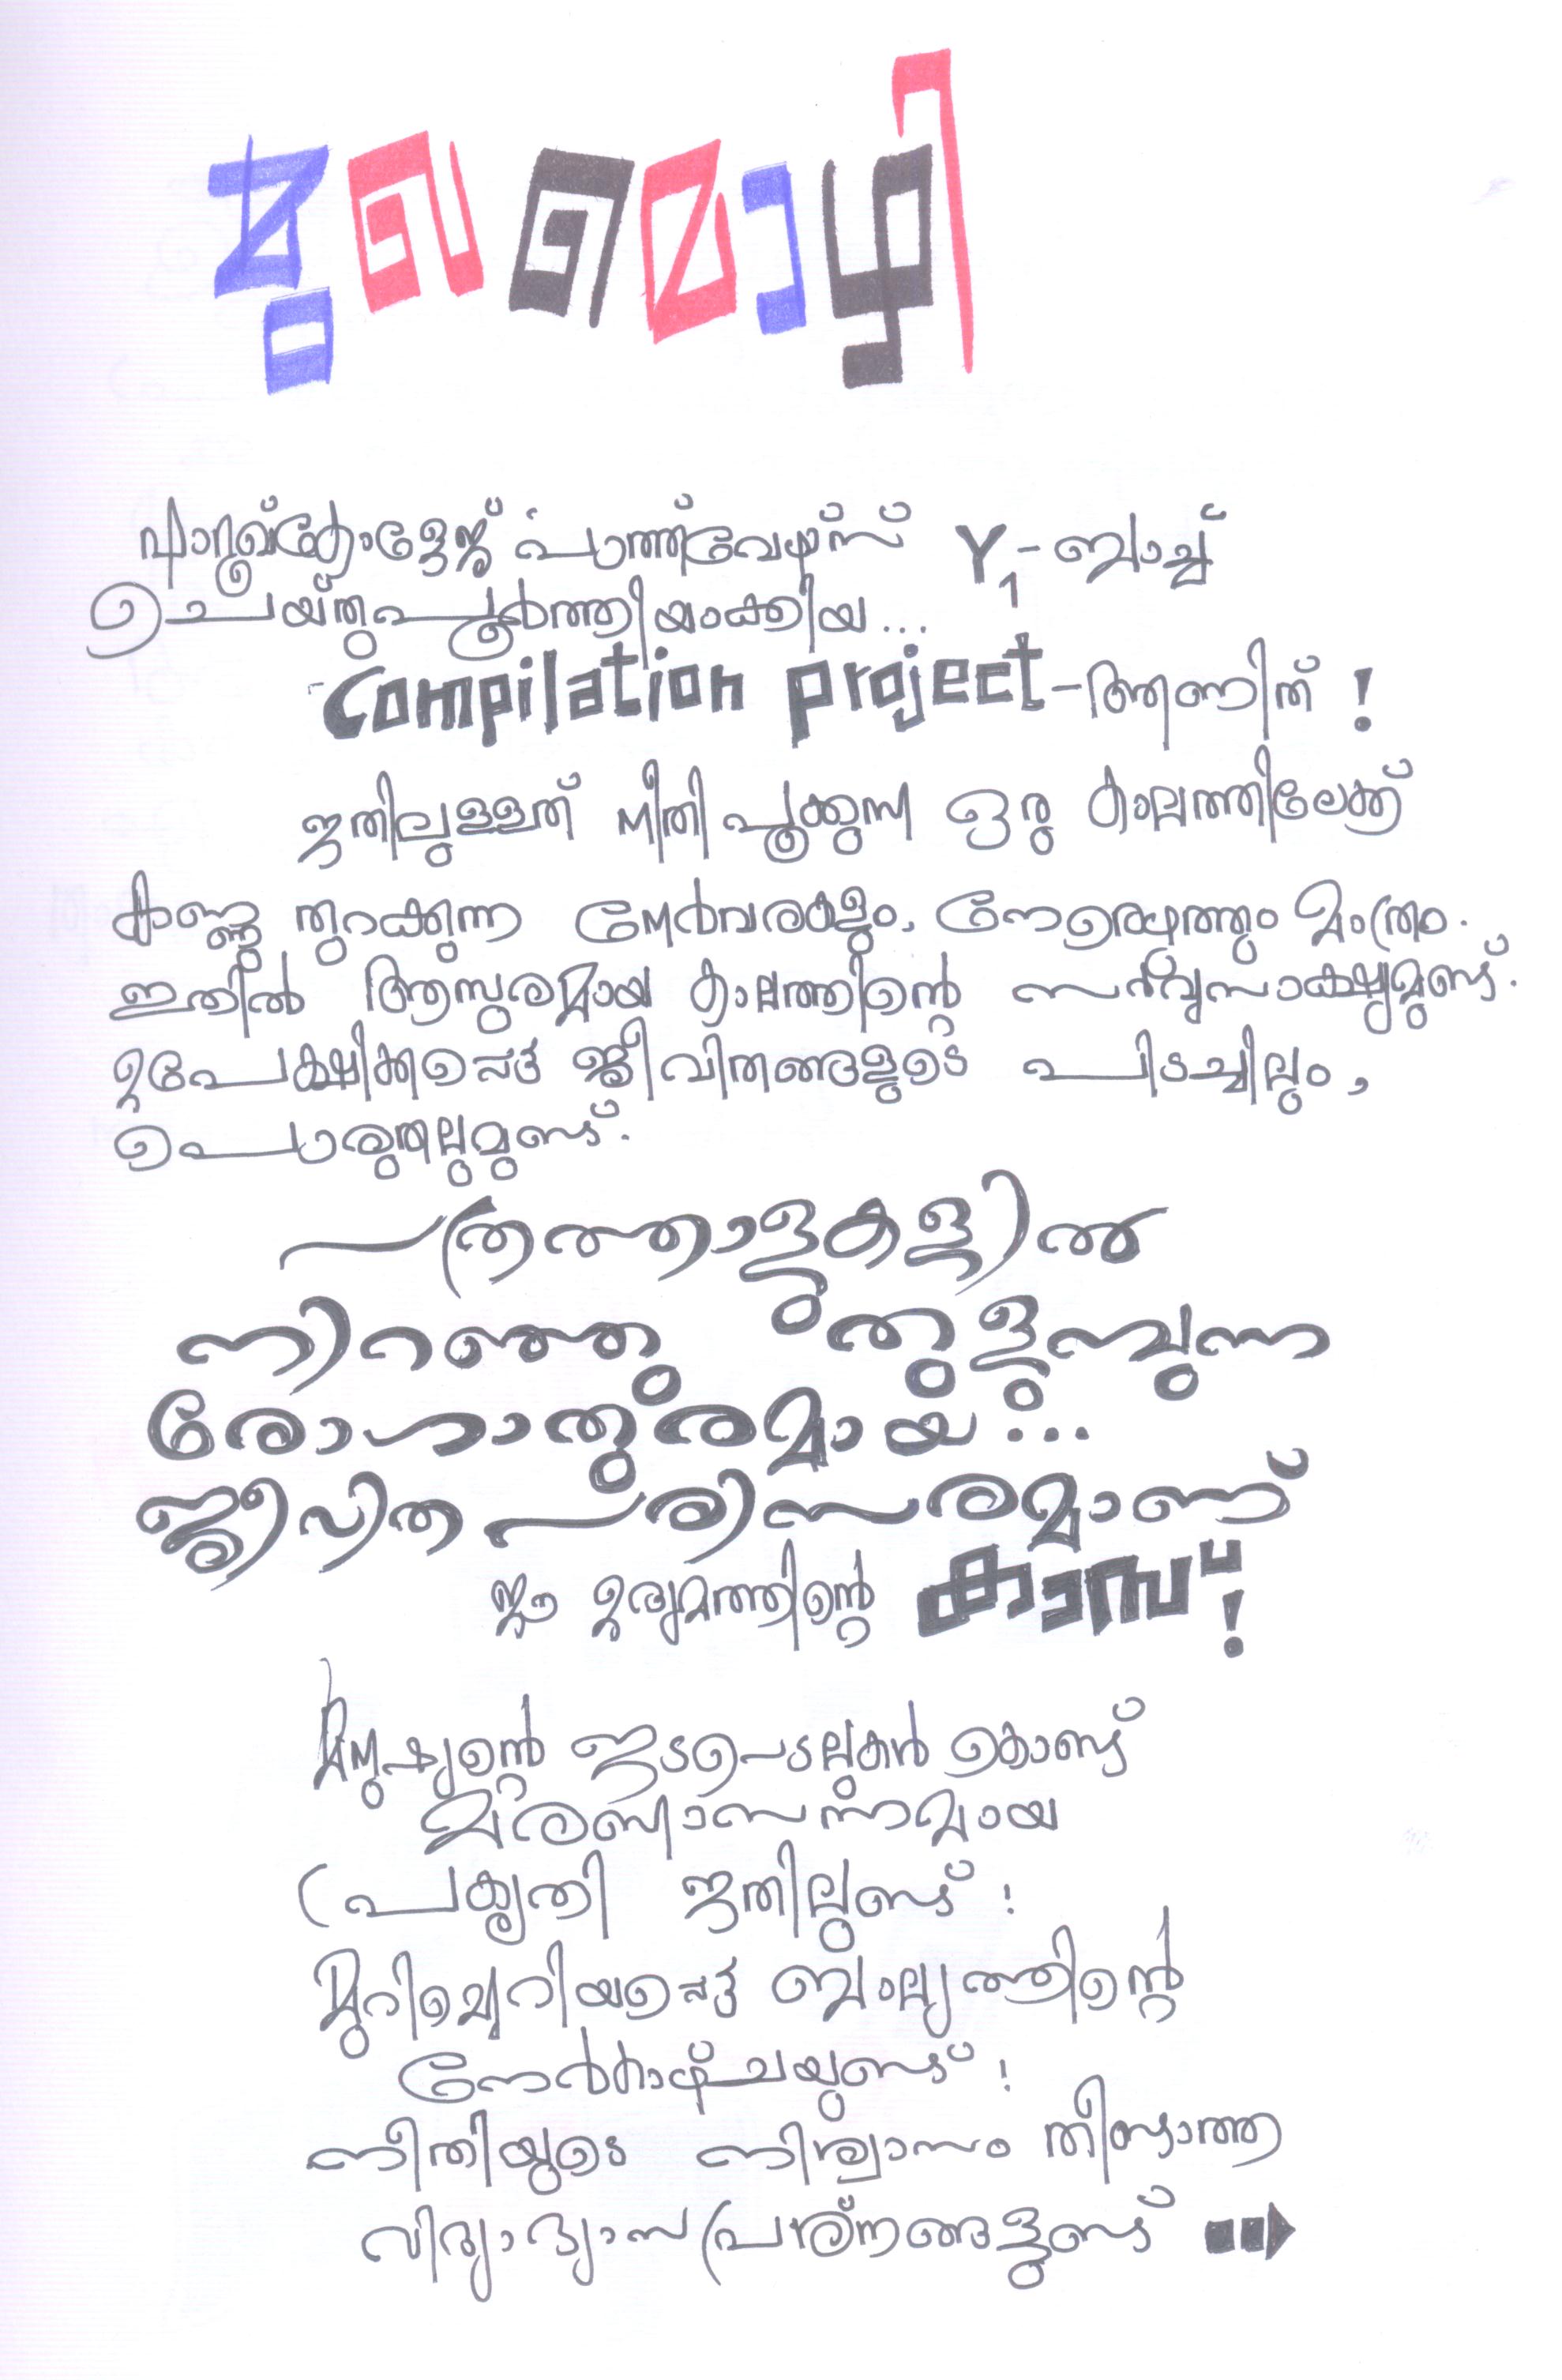 മൂലമൊഴി
ഫാറൂഖ്കോളേജ് പാത്ത്‌വേയ്സ് Y1-ബാച്ച്
ചെയ്തുപൂർത്തിയാക്കിയ...
Compilation project-ആണിത് !
ഇതിലുള്ളത് നീതി പൂക്കുന്ന ഒരു കാലത്തിലേക്ക്
കണ്ണു തുറക്കുന്ന നേർവരകളും, നേരെഴുത്തും മാത്രം.
ഇതിൽ ആസുരമായ കാലത്തിന്റെ സർവ്വസാക്ഷ്യമുണ്ട്.
ഉപേക്ഷിക്കപ്പെട്ട ജീവിതങ്ങളുടെ പിടച്ചിലും,
പൊരുതലുമുണ്ട്.
പത്രത്താളുകളിൽ
നിറഞ്ഞു തുളുമ്പുന്ന
രോഗാതുരമായ...
ജീവിത പരിസരമാണ്
ഈ ഉദ്യമത്തിന്റെ കാമ്പ് !
മനുഷ്യന്റെ ഇടപെടലുകൾ കൊണ്ട്
മരണാസന്നമായ
പ്രകൃതി ഇതിലുണ്ട് !
മുറിച്ചെറിയപ്പെട്ട ബാല്യത്തിന്റെ
നേർകാഴ്ചയുണ്ട് !
നീതിയുടെ നിശ്വാസം തീണ്ടാത്ത
വിദ്യാഭ്യാസ പ്രശ്നങ്ങളുണ്ട്